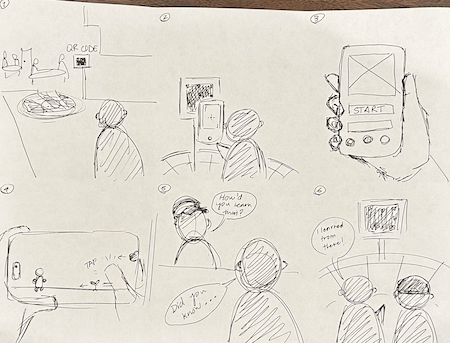 1
QR CODE
2
3
START
4
TAP
5
How'd
you learn
that?
Did you
know...
6
I learned
from
there!